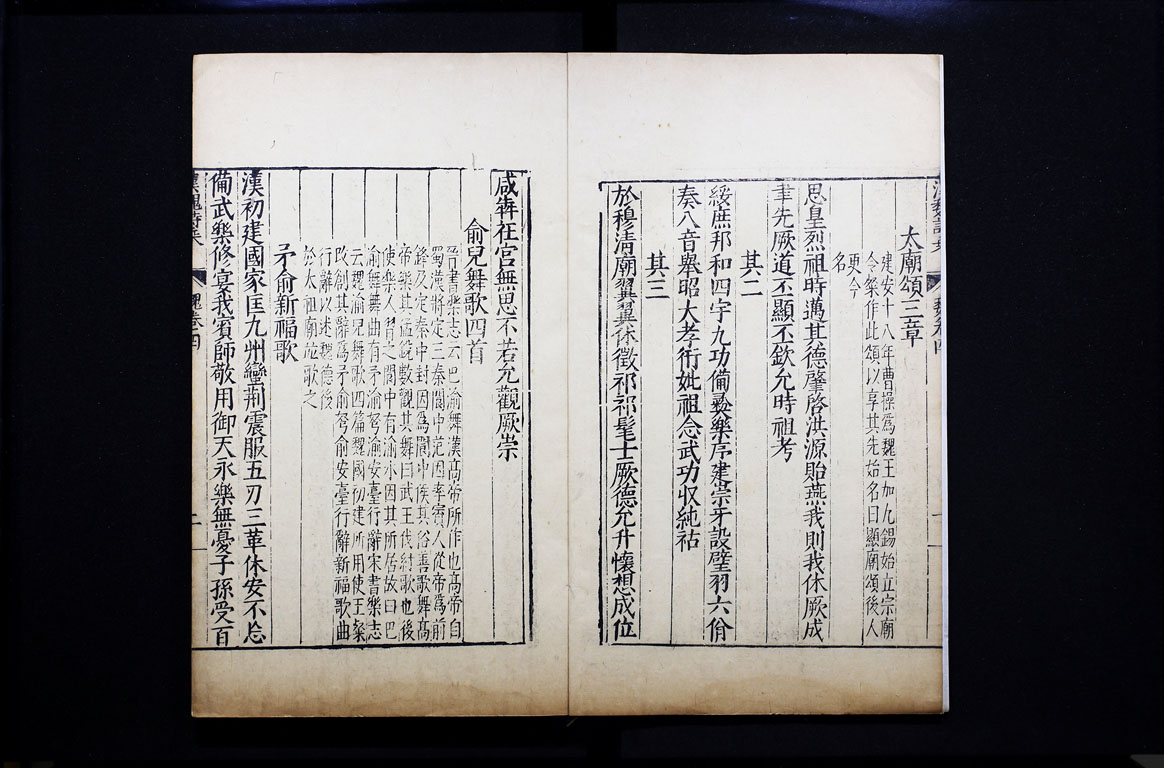 太廟頌三章
建安十八年曹操爲魏王加九錫始立宗廟
令粲作此頌以享其先始名曰顯廟頌後人
更今
名
思皇烈祖時邁其德肇啓洪源貽燕我則我休厥成
聿先厥道丕顯丕欽允時祖考
其二
綏庶邦和四宇九功備彜樂序建崇牙設璧羽六佾
奏八音舉昭大孝衎妣祖念武功收純祜
其三
於穆清廟翼翼休徵祁祁髦士厥德允升懷想成位
咸犇在宮無思不若允觀厥崇
俞兒舞歌四首
晉書樂志云巴渝舞漢高帝所作也高帝自
蜀漢將定三秦閬中范因率賨人從帝爲前
鋒及定秦中封因爲閬中侯其俗善歌舞高
帝樂其猛銳數觀其舞曰武王伐紂歌也後
使樂人習之閬中有渝水因其所居故曰巴
渝舞舞曲有矛渝弩渝安臺行辭宋書樂志
云魏渝兒舞歌四篇魏國初建所用使王粲
改創其辭爲矛俞弩俞安臺行辭新福歌曲
行辭以述魏德後
於太祖廟並歌之
矛俞新福歌
漢初建國家匡九州蠻荆震服五刃三革休安不忘
備武樂修宴我賓師敬用御天永樂無憂子孫受百
魏卷四
二